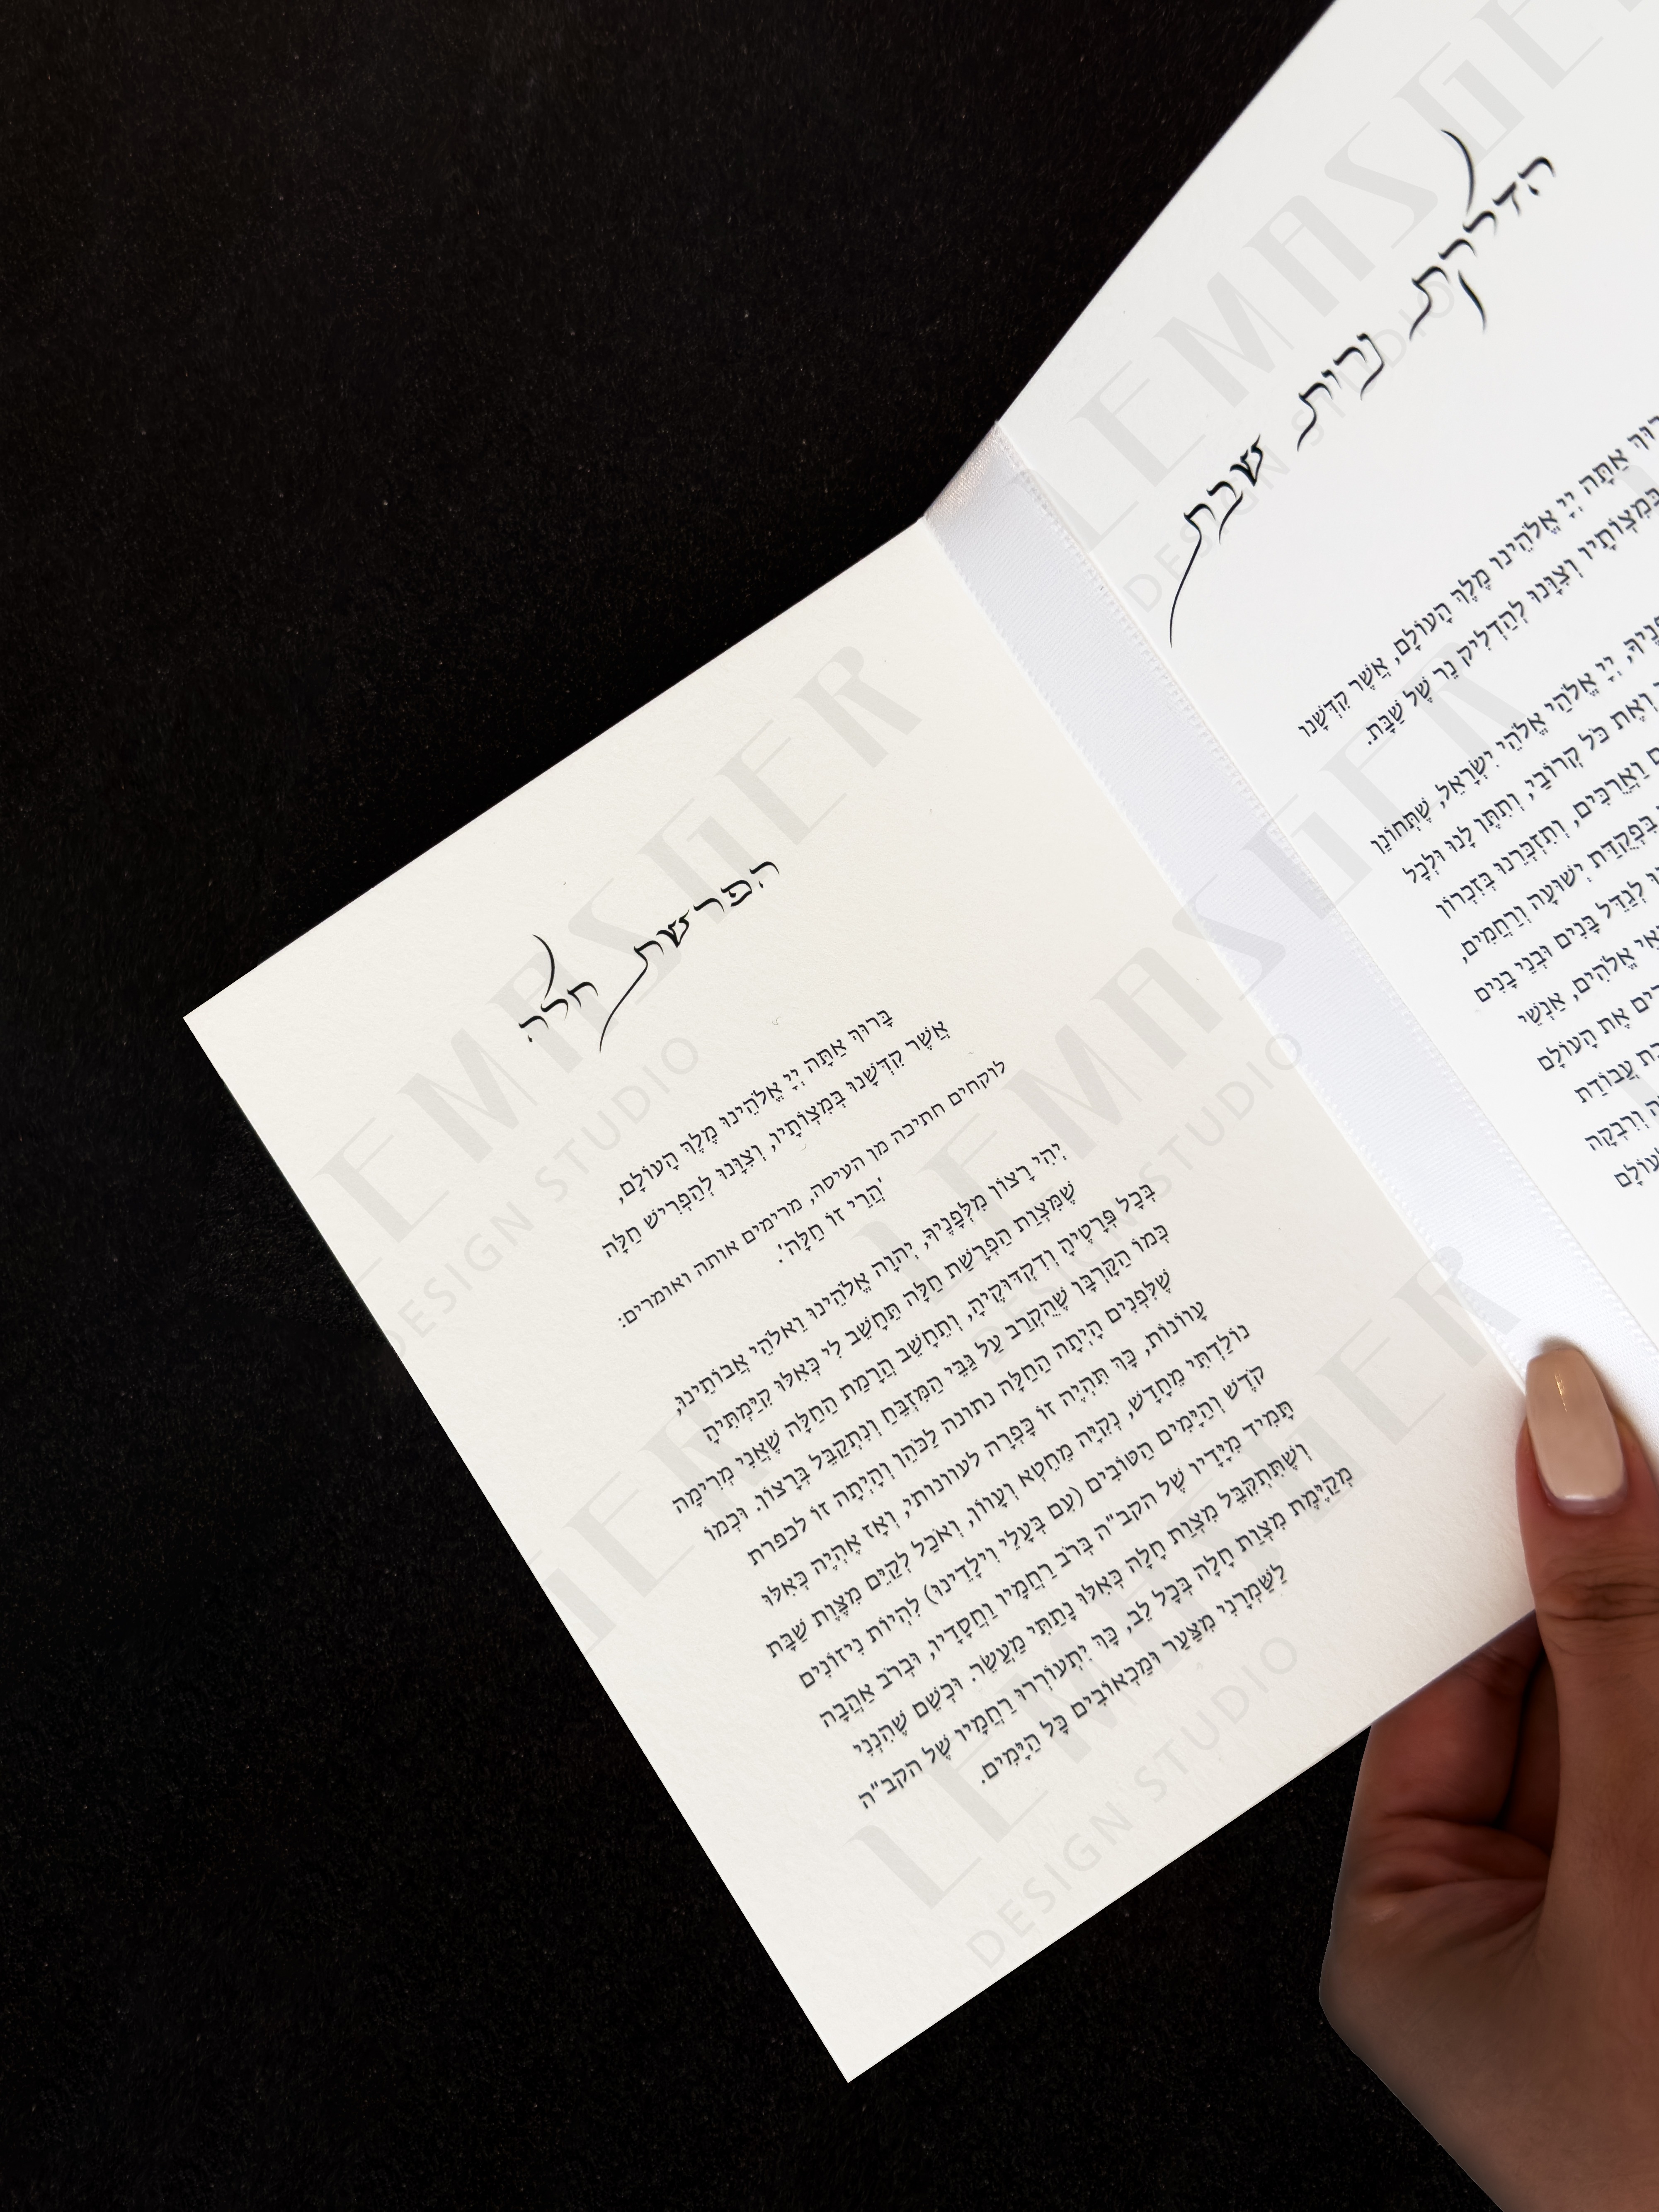 הדלקת נרות שבת
אַתָּה יְיָ אֱלֹהֵינוּ מֶלֶךְ הָעוֹלָם, אֲשֶׁר קִדְּשָׁנוּ
בְּמִצְוֹתָיו וְצִוָּנוּ לְהַדְלִיק נֵר שֶׁל שַׁבָּת.
יְיָ אֱלֹהַי אֱלֹהֵי יִשְׂרָאֵל, שֶׁתְּחוֹנֵן
וְאֶת כֹּל קְרוֹבַי, וְתִתֵּן לָנוּ וּלְכָל
וַאֲרֻכִּים, וְתִזְכְּרֵנוּ בְּזִכְרוֹן
בִּפְקֻדַּת יְשׁוּעָה וְרַחֲמִים,
לְגַדֵּל בָּנִים וּבְנֵי בָנִים
אֱלֹהִים, אַנְשֵׁי
אֶת הָעוֹלָם
עֲבוֹדַת
וְרִבְקָה
הפרשת חלה
בָּרוּךְ אַתָּה יְיָ אֱלֹהֵינוּ מֶלֶךְ הָעוֹלָם,
אֲשֶׁר קִדְּשָׁנוּ בְּמִצְוֹתָיו, וְצִוָּנוּ לְהַפְרִישׁ חַלָּה
לוקחים חתיכה מן העיסה, מרימים אותה ואומרים:
'הֲרֵי זוֹ חַלָּה'.
יְהִי רָצוֹן מִלְּפָנֶיךָ, יְהֹוָה אֱלֹהֵינוּ וֵאלֹהֵי אֲבוֹתֵינוּ,
שֶׁמִּצְוַת הַפְרָשַׁת חַלָּה תֵּחָשֵׁב לִי כְּאִלּוּ קִיַּמְתִּיהָ
בְּכָל פְּרָטֶיהָ וְדִקְדּוּקֶיהָ, וְתֵחָשֵׁב הֲרָמַת הַחַלָּה שֶׁאֲנִי מְרִימָה
כְּמוֹ הַקָּרְבָּן שֶׁהֻקְרַב עַל גַּבֵּי הַמִּזְבֵּחַ וְנִתְקַבֵּל בְּרָצוֹן. וּכְמוֹ
שֶׁלִּפְנִים הָיְתָה הַחַלָּה נתונה לַכֹּהֵן וְהָיְתָה זוֹ לכפרת
עֲווֹנוֹת, כָּךְ תִּהְיֶה זוֹ כָּפָּרָה לעוונותי, וְאָז אֶהְיֶה כְּאִלּוּ
נוֹלַדְתִּי מֵחָדָשׁ, נְקִיָּה מֵחֵטְא וְעָווֹן, וְאוּכַל לְקַיֵּם מִצְוַת שַׁבָּת
קֹדֶשׁ וְהַיָּמִים הַטּוֹבִים (עִם בַּעֲלִי וִילָדֵינוּ) לִהְיוֹת נִיזוֹנִים
תָּמִיד מִיָּדָיו שֶׁל הקב"ה בְּרֹב רַחֲמָיו וַחֲסָדָיו, וּבְרֹב אַהֲבָה
וְשֶׁתִּתְקַבֵּל מִצְוַת חַלָּה כְּאִלּוּ נָתַתִּי מַעֲשֵׂר. וּכְשֵׁם שֶׁהִנְנִי
מְקַיֶּמֶת מִצְוַת חַלָּה בְּכָל לֵב, כָּךְ יִתְעוֹרְרוּ רַחֲמָיו שֶׁל הקב"ה
לְשָׁמְרֵנִי מִצַּעַר וּמַכְאוֹבִים כָּל הַיָּמִים.
LEMASGER
DESIGN STUDIO